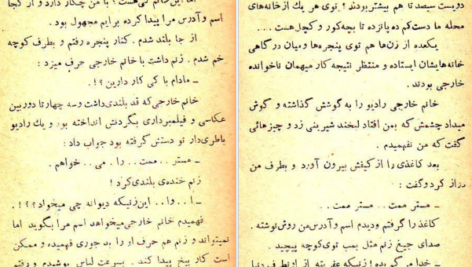 دویست سیصد تا هم بیشتر بودند؟. توی هر یك از خانه‌های
محله ما دست کم ده پانزده تا بچه کور و کچل هست...
یکعده از زن‌ها هم توی پنجره‌ها و میان درگاهی
خانه‌هایشان ایستاده و منتظر نتیجه کار میهمان ناخوانده
خارجی بودند.
خانم خارجی رادیو را به گوشش گذاشته و گوش
میداد چشمش که بمن افتاد لبخند شیرینی زد و چیزهائی
گفت که من نفهمیدم.
بعد کاغذی را از کیفش بیرون آورد و بطرف من
دراز کرد و گفت:
ـ مستر... ممت... مستر ممت..
کاغذ را گرفتم و دیدم اسم و آدرس من روش نوشته.
صدای جیغ زنم مثل بمب توی کوچه پیچید.
اسم و آدرس من را پیدا کرده برایم مجهول بود.
از جا بلند شدم. کنار پنجره رفتم و بطرف کوچه
خم شدم. زنم داشت با خانم خارجی حرف میزد:
ـ مادام با کی کار دارین؟!.
خانم خارجی که قد بلندی داشت و سه چهار تا دوربین
عکاسی و فیلمبرداری بگردنش انداخته بود و یك رادیو
باطری‌دار تو دستش گرفته بود جواب داد:
ـ مستر.. ممت.. را.. می.. خواهم.
زنم خنده‌ی بلندی کرد!
ـ ا.. وا.. این زنیکه دیوانه چی میخواد؟؟!.
فهمیدم خانم خارجی میخواهد اسم مرا بگوید اما
نمیتواند و زنم هم حرف او را بد جوری فهمیده و ممکن
است کار بیخ پیدا کند. بسرعت لباس پوشیدم و رفتم